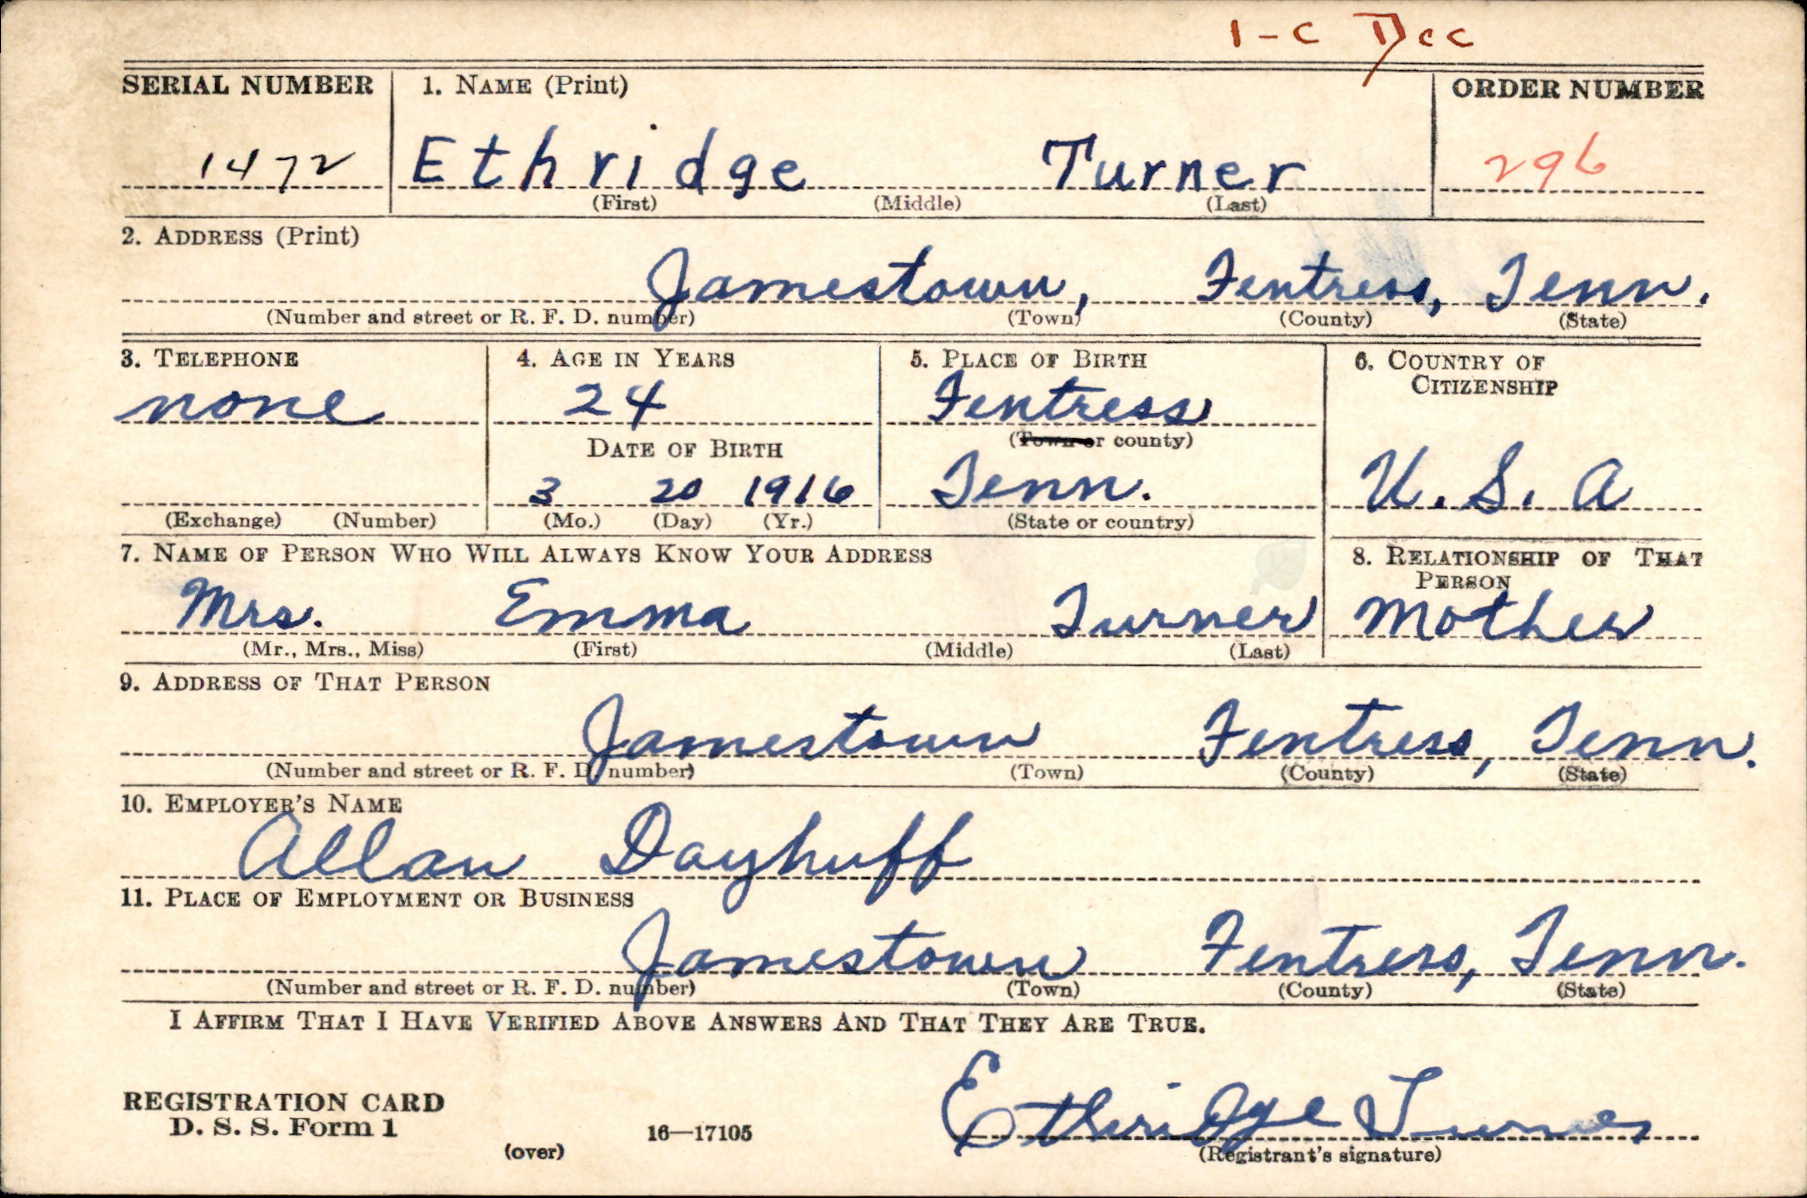 1-C Dec
SERIAL NUMBER 1. NAME (Print) ORDER NUMBER
1472 Ethridge Turner 296
(First) (Middle) (Last)
2. ADDRESS (Print)
Jamestown, Fentress, Tenn.
(Number and street or R. F. D. number) (Town) (County) (State)
3. TELEPHONE 4. AGE IN YEARS 5. PLACE OF BIRTH 6. COUNTRY OF CITIZENSHIP
none 24 Fentress
DATE OF BIRTH (Town or county)
3 20 1916 Tenn. U.S.A
(Exchange) (Number) (Mo.) (Day) (Yr.) (State or country)
7. NAME OF PERSON WHO WILL ALWAYS KNOW YOUR ADDRESS 8. RELATIONSHIP OF THAT PERSON
Mrs. Emma Turner Mother
(Mr., Mrs., Miss) (First) (Middle) (Last)
9. ADDRESS OF THAT PERSON
Jamestown Fentress, Tenn.
(Number and street or R. F. D. number) (Town) (County) (State)
10. EMPLOYER'S NAME
Allan Dayhuff
11. PLACE OF EMPLOYMENT OR BUSINESS
Jamestown Fentress, Tenn.
(Number and street or R. F. D. number) (Town) (County) (State)
I AFFIRM THAT I HAVE VERIFIED ABOVE ANSWERS AND THAT THEY ARE TRUE.
REGISTRATION CARD
D. S. S. Form 1 16—17105 Ethridge Turner
(over) (Registrant's signature)